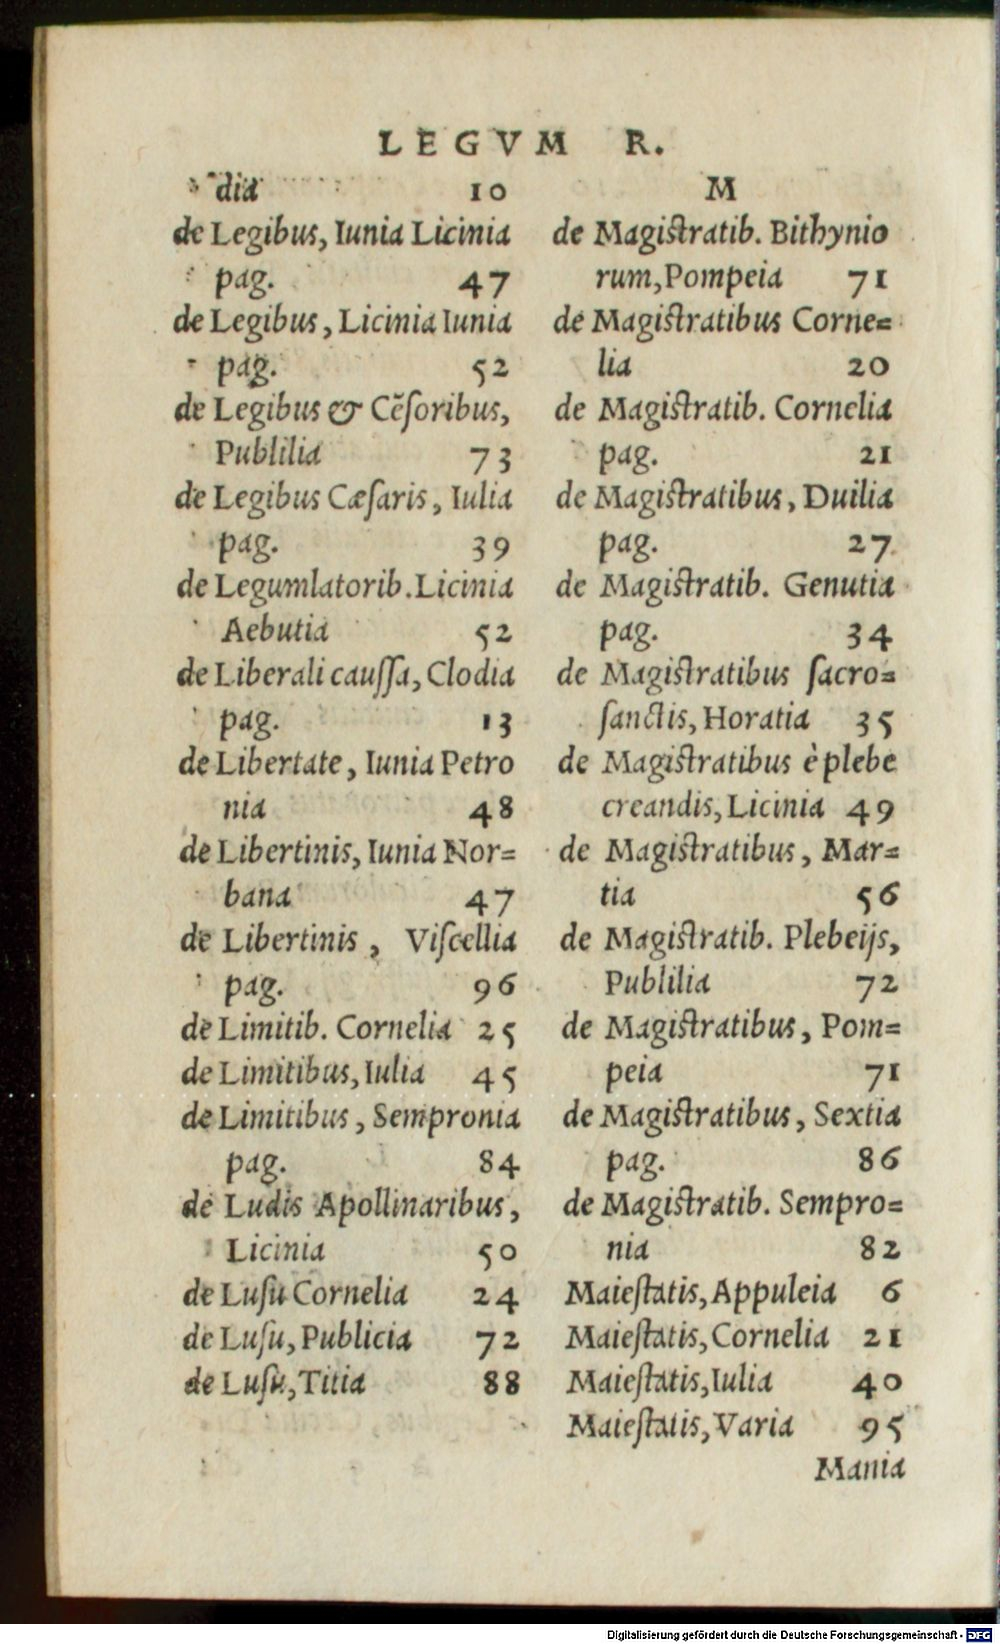 LEGVM R.
dia 10
de Legibus, Iunia Licinia
pag. 47
de Legibus, Licinia Iunia
pag. 52
de Legibus & Cẽſoribus,
Publilia 73
de Legibus Cæſaris, Iulia
pag. 39
de Legumlatorib. Licinia
Aebutia 52
de Liberali cauſſa, Clodia
pag. 13
de Libertate, Iunia Petro
nia 48
de Libertinis, Iunia Nor=
bana 47
de Libertinis, Viſcellia
pag. 96
de Limitib. Cornelia 25
de Limitibus, Iulia 45
de Limitibus, Sempronia
pag. 84
de Ludis Apollinaribus,
Licinia 50
de Luſu Cornelia 24
de Luſu, Publicia 72
de Luſu, Titia 88
M
de Magistratib. Bithynio
rum, Pompeia 71
de Magistratibus Corne=
lia 20
de Magistratib. Cornelia
pag. 21
de Magistratibus, Duilia
pag. 27
de Magistratib. Genutia
pag. 34
de Magistratibus ſacro=
ſanctis, Horatia 35
de Magistratibus è plebe
creandis, Licinia 49
de Magistratibus, Mar=
tia 56
de Magistratib. Plebeijs,
Publilia 72
de Magistratibus, Pom=
peia 71
de Magistratibus, Sextia
pag. 86
de Magistratib. Sempro=
nia 82
Maieſtatis, Appuleia 6
Maieſtatis, Cornelia 21
Maieſtatis, Iulia 40
Maieſtatis, Varia 95
Mania
Digitalisierung gefördert durch die Deutsche Forschungsgemeinschaft - DFG